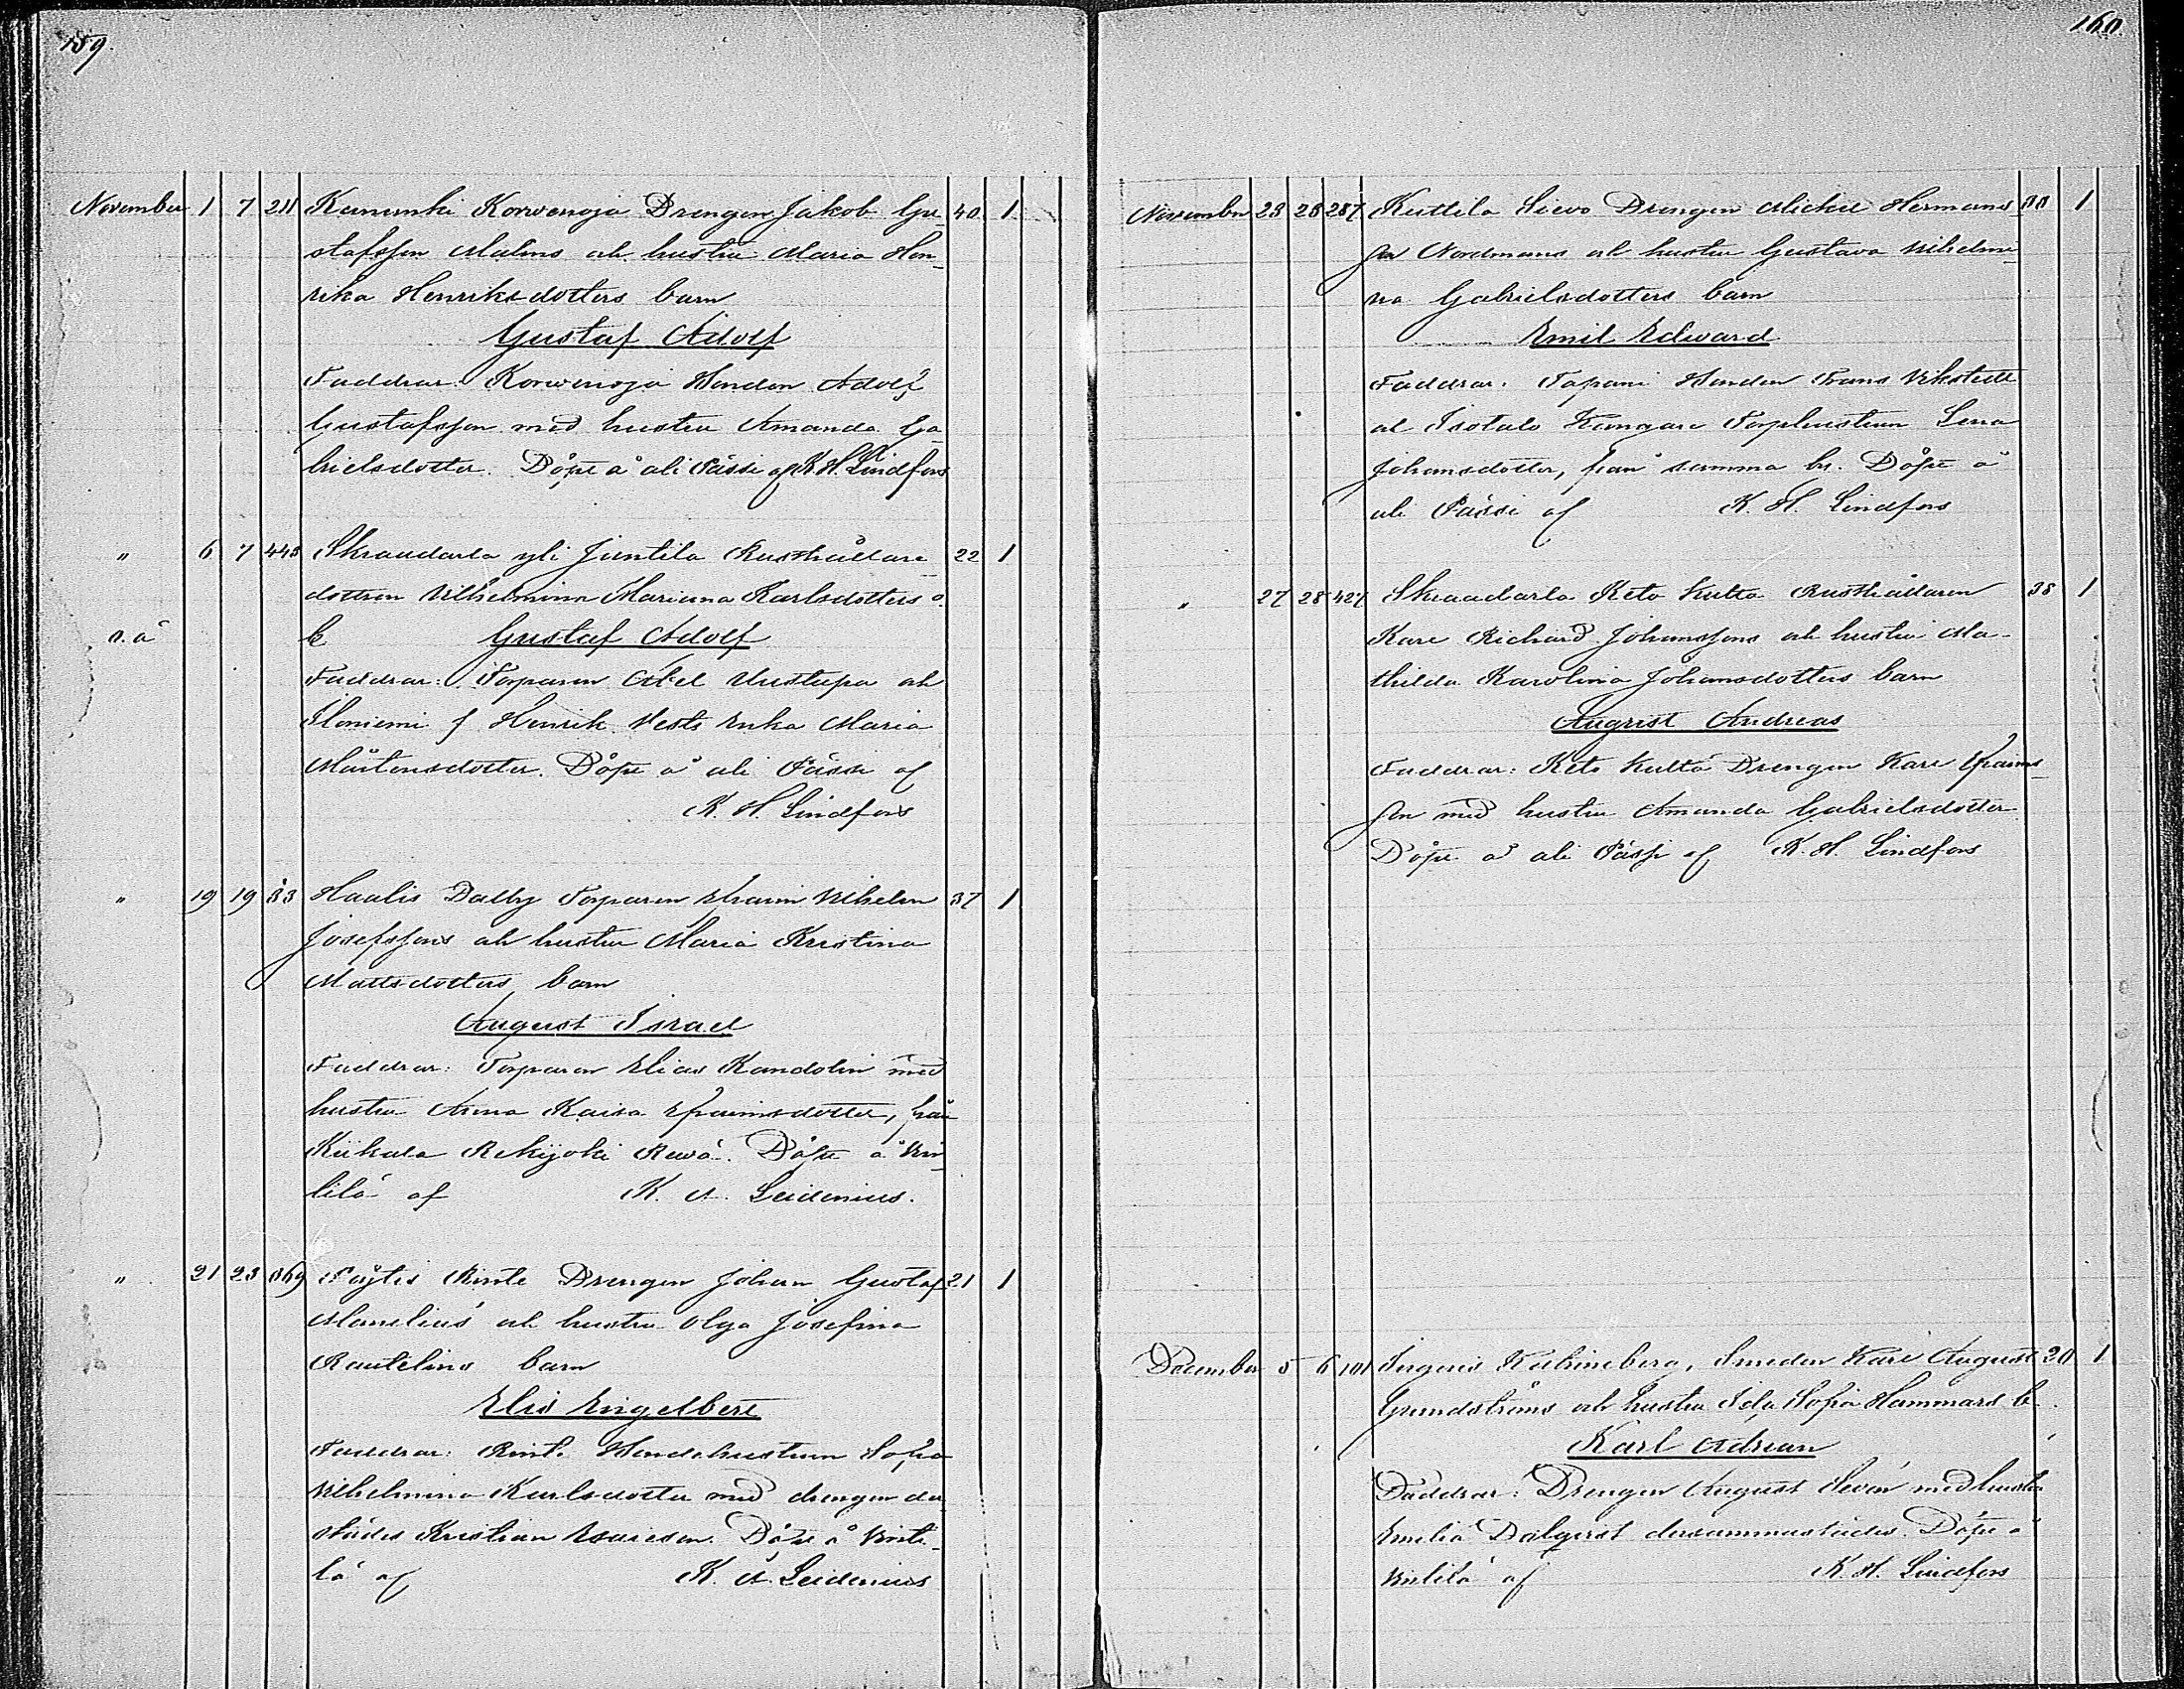 159.
November 1 7 211 Kanunki Korvenoja Drengen Jakob Gu- 40 1
stafsson Malms och hustru Maria Hen-
rika Henriksdotters barn
Gustaf Adolf
Faddrar: Korvenoja Bonden Adolf
Gustafsson med hustru Amanda Ga-
brielsdotter. Döpt å ali Pässi af K. H. Lindfors
" 6 7 443 Skraadarla yli Juntila Rusthållare- 22 1
dottren Vilhelmina Mariana Karlsdotters o.
o. ä b. Gustaf Adolf
Faddrar: Torparen Abel Uustupa och
Iloniemi f Henrik Vests Enka Maria
Mårtensdotter. Döpt å ali Pässi af
K. H. Lindfors
" 19 19 33 Haalis Dalby Torparen Efraim Vilhelm 37 1
Josefssons och hustru Maria Kristina
Mattsdotters barn
August Israel
Faddrar: Torparen Elias Kandolin med
hustru Anna Kaisa Efraimsdotter, från
Kiikala Rekijoki. Döpt å Vin-
tilä af K. A. Leidenius.
" 21 23 369 Pöytis Rinte Drengen Johan Gustaf 21 1
Manelius och hustru Olga Josefina
Rautelins barn
Elis Engelbert
Faddrar: Rinte Bondehustrun Sofia
Vilhelmina Karlsdotter med drengen der-
städes Kristian Esaiesson. Döpt å Vinti-
lä af K. A. Leidenius
160.
November 23 28 287 Kuttila Sievo Drengen Michel Hermans- 30 1
son Nordmans och hustru Gustava Vilhelmi-
na Gabrielsdotters barn
Emil Edvard
Faddrar: Tapani Bonden Frans Vikstedt
och Isotalo Kangare Torphustrun Lena
Johansdotter, från samma by. Döpt å
ali Pässi af K. H. Lindfors
" 27 28 427 Skraadarla Keto Kulta Rusthållaren 38 1
Karl Richard Johanssons och hustru Ma-
thilda Karolina Johansdotters barn
August Andreas
Faddrar: Keto Kulta Drengen Karl Efraims-
son med hustru Amanda Gabrielsdotter
Döpt å ali Pässi af K. H. Lindfors
December 5 6 101 Ingeris Kuhineberg, Smeden Karl August 20 1
Grundströms och hustru Ida Sofia Hammars b.
Karl Adrian
Faddrar: Drengen August Sevón med hustru
Emelia Dalqvist dersammastädes. Döpt å
Vintilä af K. H. Lindfors